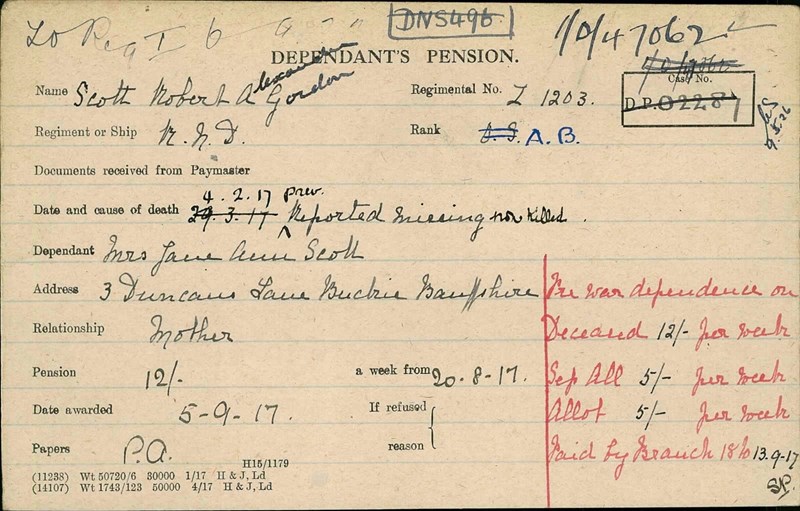 To Reg I 6
DNS496
1/D/47062
DEPENDANT'S PENSION.
Name Scott Robert Alexandra Gordon
Regimental No. Z 1203.
Case No.
D.P. 02287
Regiment or Ship R.N.D.
Rank O.S. A.B.
9.5.26
Documents received from Paymaster
4.2.17 prev.
Date and cause of death 29.3.17 Reported missing now killed.
Dependant Mrs Jane Ann Scott
Address 3 Duncans Lane Buckie Banffshire
Relationship Mother
Pension 12/- a week from 20-8-17.
Date awarded 5-9-17. If refused
reason
Papers P.A.
H15/1179
(11238) Wt 50720/6 30000 1/17 H & J, Ld
(14107) Wt 1743/123 50000 4/17 H & J, Ld
Pre war dependence on
Deceased 12/- per week
Sep All 5/- per week
Allot 5/- per week
Paid by Branch 18 to 13.9.17
SP.